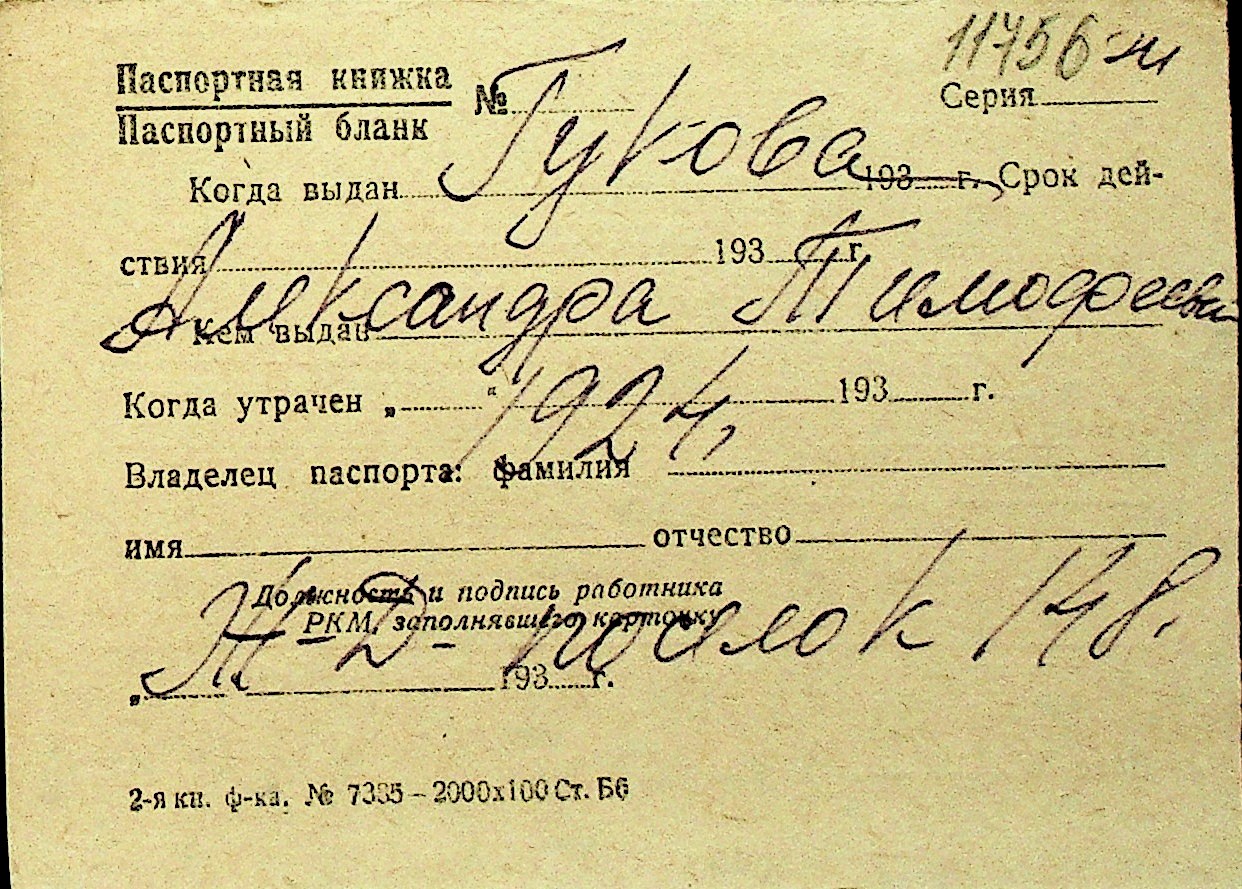 11756-и
Паспортная книжка
Паспортный бланк
№ Серия
Гукова
Когда выдан 193 г. Срок дей-
ствия 193 г.
Александра Тимофеевн
Кем выдан
Когда утрачен „ “ 193 г.
1924,
Владелец паспорта: фамилия
имя отчество
Должность и подпись работника
РКМ, заполнявшего карточку
Ж-Д- поселок 148.
„ “ 193 г.
2-я кн. ф-ка. № 7335 – 2000х100 Ст. Б6